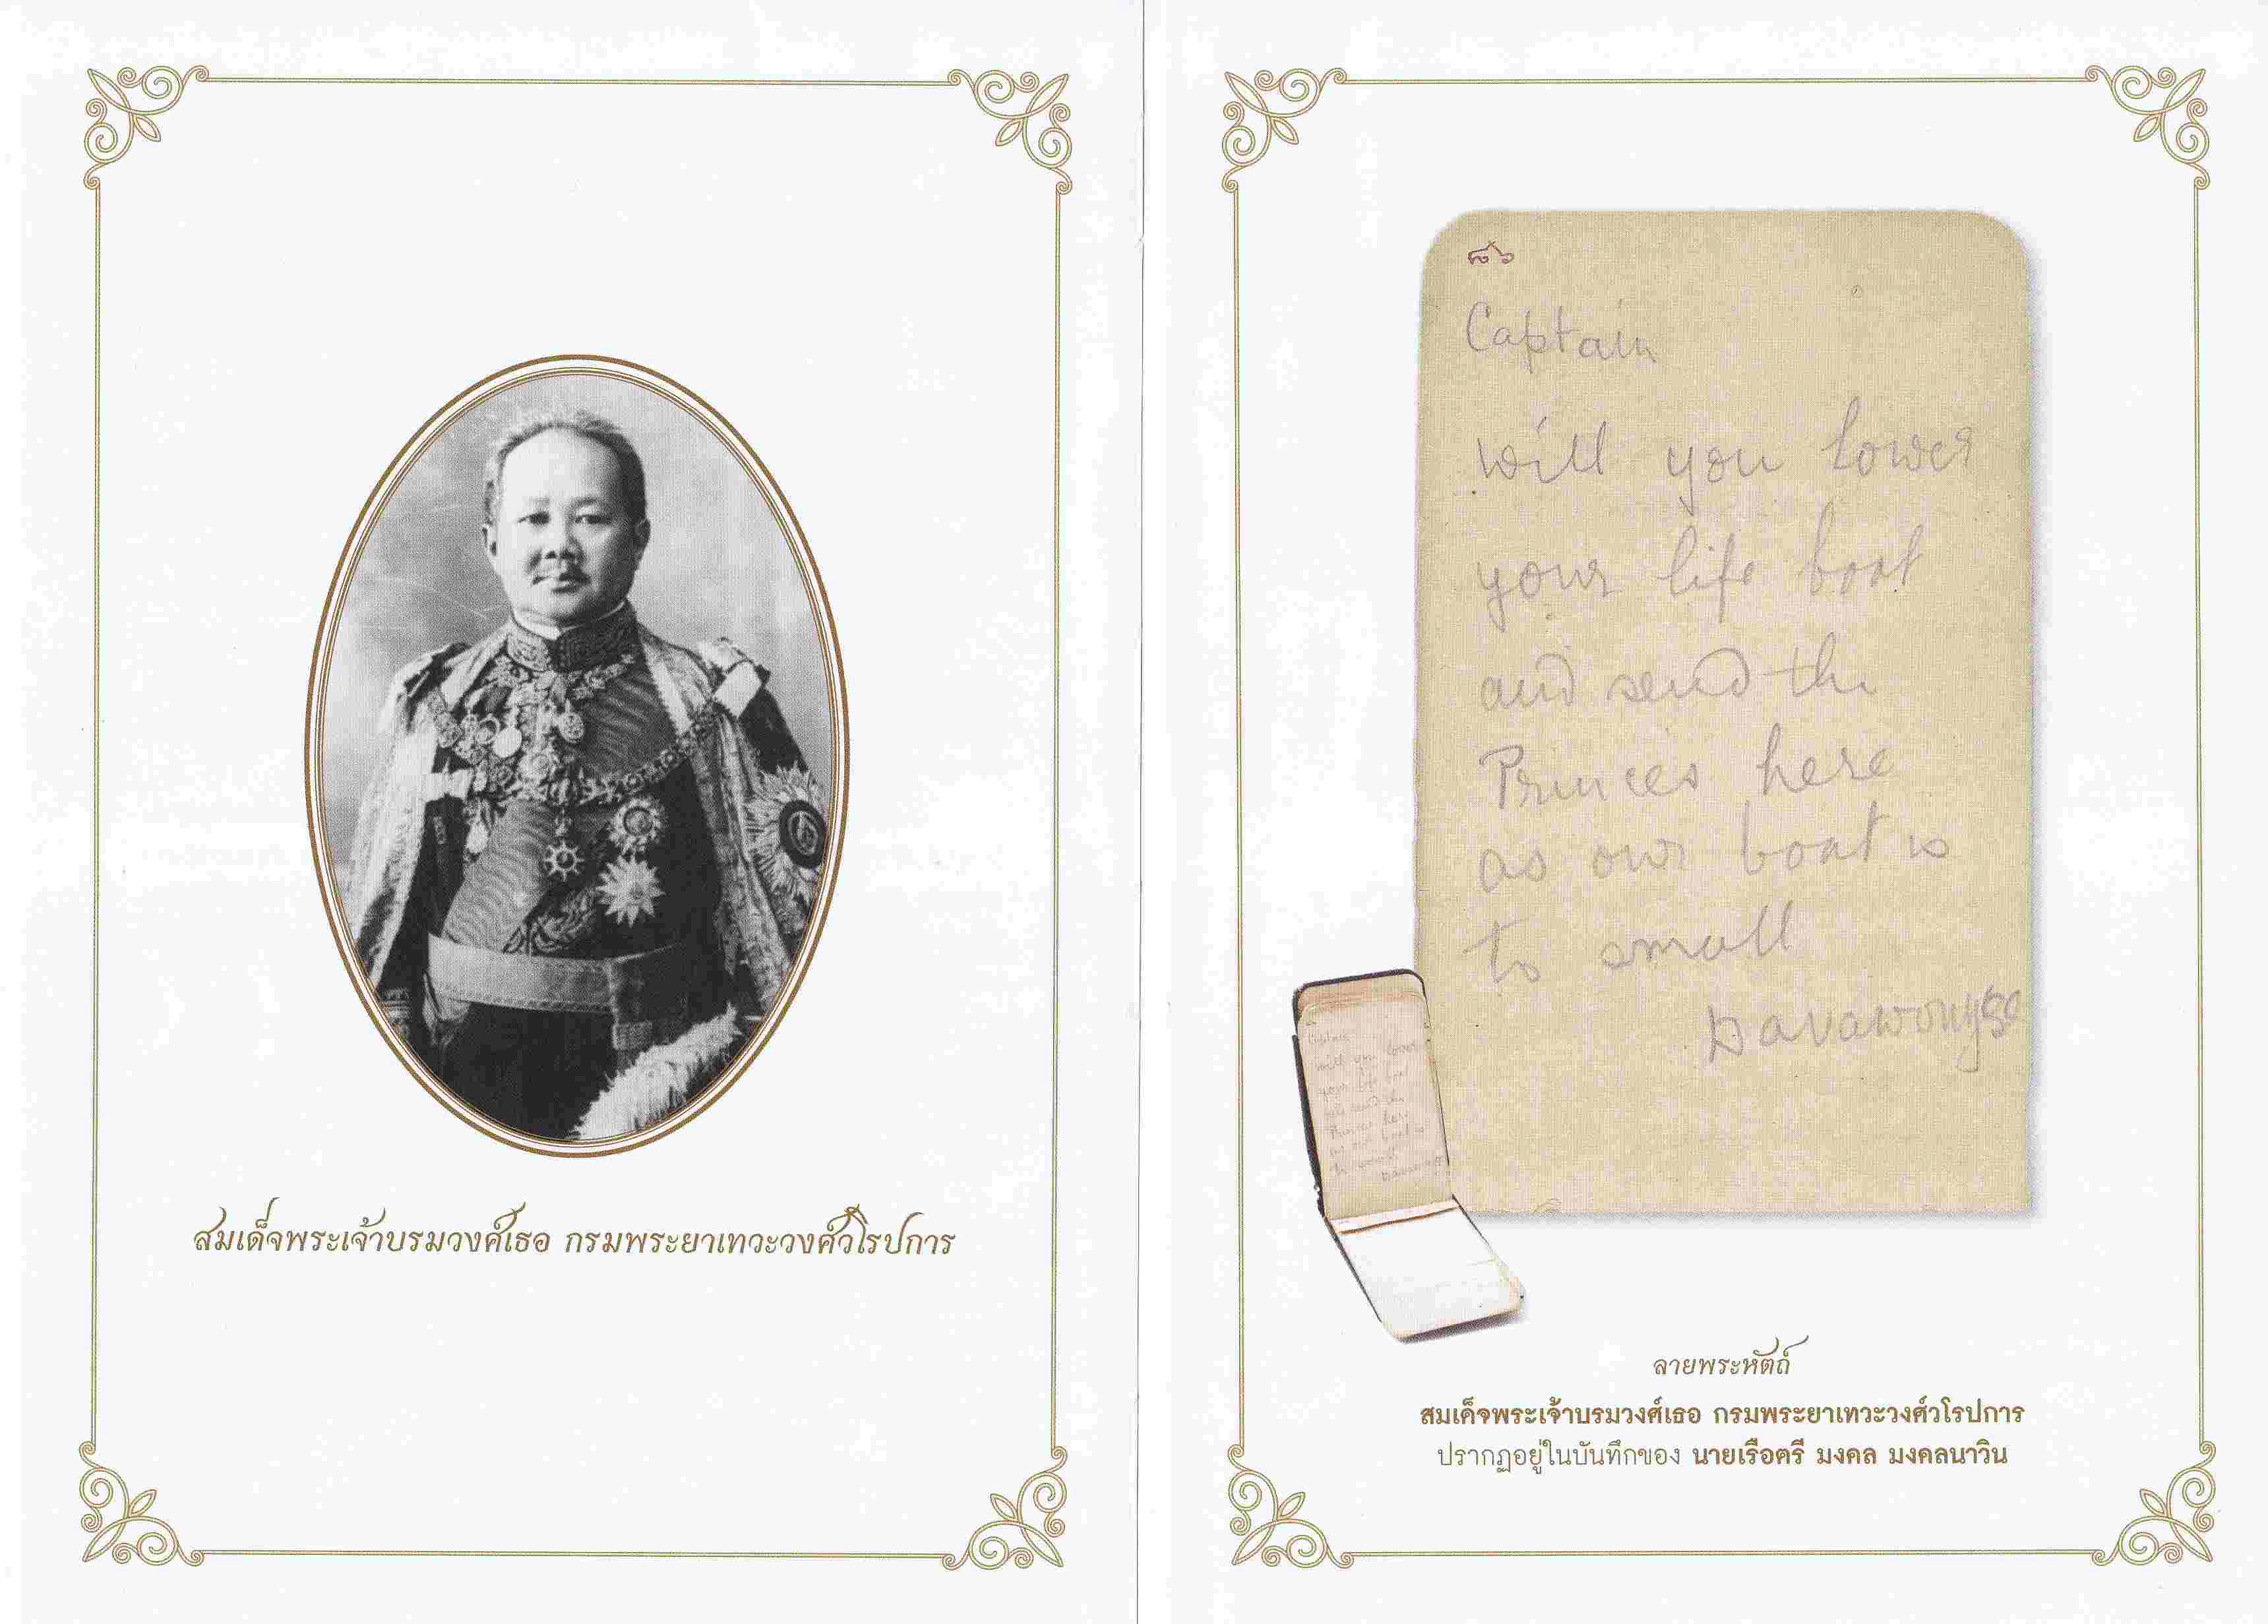 สมเด็จพระเจ้าบรมวงศ์เธอ กรมพระยาเทวะวงศ์วโรปการ
๘๖
Captain
will you lower
your life boat
and send the
Princes here
as our boat is
to small
Davawongse
ลายพระหัตถ์
สมเด็จพระเจ้าบรมวงศ์เธอ กรมพระยาเทวะวงศ์วโรปการ
ปรากฏอยู่ในบันทึกของ นายเรือตรี มงคล มงคลนาวิน